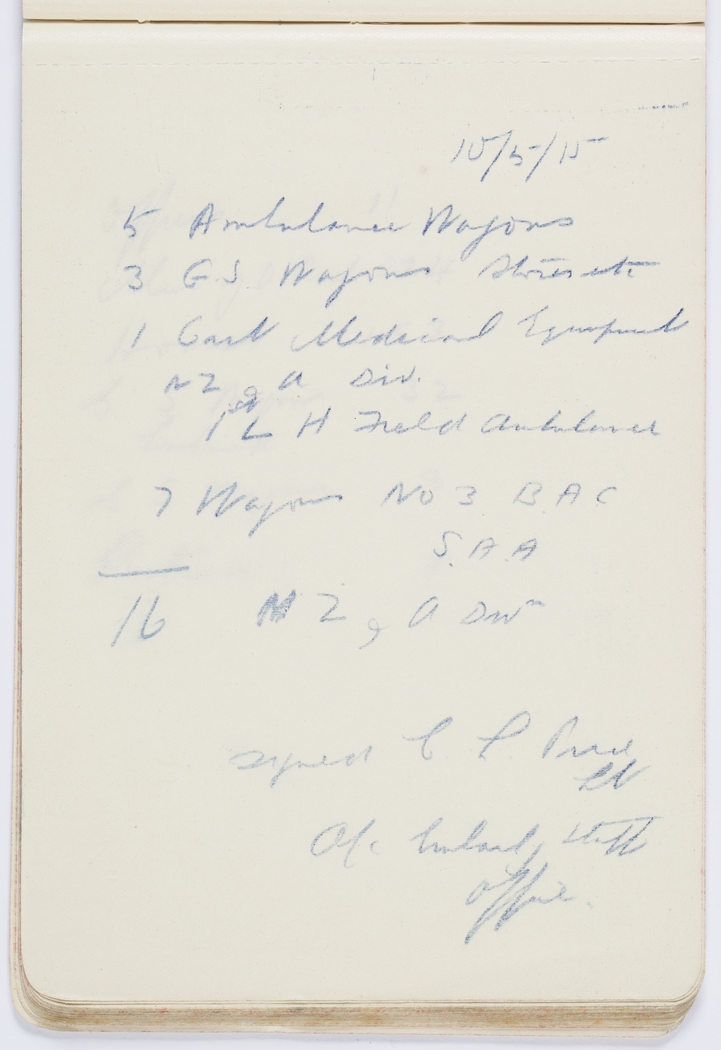 10/5/15
5 Ambulance Wagons
3 G S. Wagons Stores etc
1 Cart Medical Equipment
NZ & A Div.
1st L H Field Ambulance
7 Wagons No 3 B A C
S.A.A
16 N Z & A Divn
signed C L
Lt
O/c Embark Staff
Office.